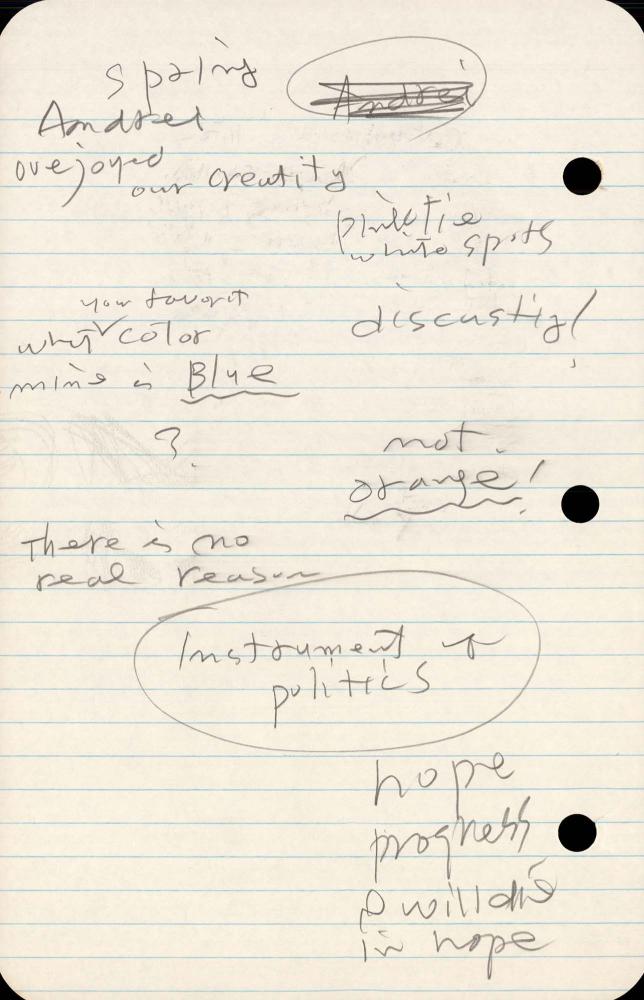 spring
Andrei
Andrei
ovejoyed
our creatity
pink tie
white spots
your favorit
what color
mine is Blue
?
discustig!
not
orange!
There is no
real reason
Instrument
politics
hope
progress
I will die
in hope